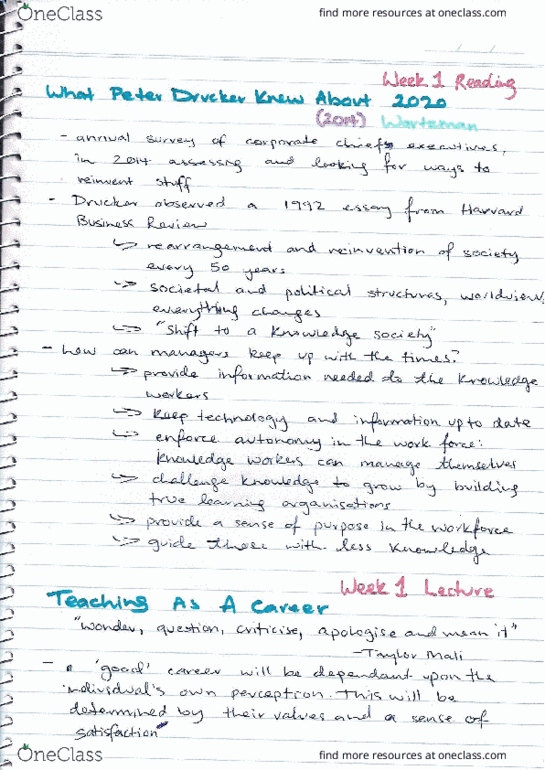 OneClass
find more resources at oneclass.com
Week 1 Reading
What Peter Drucker Knew About 2020
(2014) Wartzman
- annual survey of corporate chiefs executives,
in 2014 assessing and looking for ways to
reinvent stuff
- Drucker observed a 1992 essay from Harvard
Business Review
↳ rearrangement and reinvention of society
every 50 years
↳ societal and political structures, worldview,
everything changes
↳ "shift to a knowledge society"
- how can managers keep up with the times?
↳ provide information needed to the knowledge
workers
↳ keep technology and information up to date
↳ enforce autonomy in the work force:
knowledge workers can manage themselves
↳ challenge knowledge to grow by building
true learning organisations
↳ provide a sense of purpose in the workforce
↳ guide those with less knowledge
Week 1 Lecture
Teaching As A Career
"wonder, question, criticise, apologise and mean it"
- Taylor Mali
- a 'good' career will be dependant upon the
individual's own perception. This will be
determined by their values and a sense of
satisfaction
OneClass
find more resources at oneclass.com